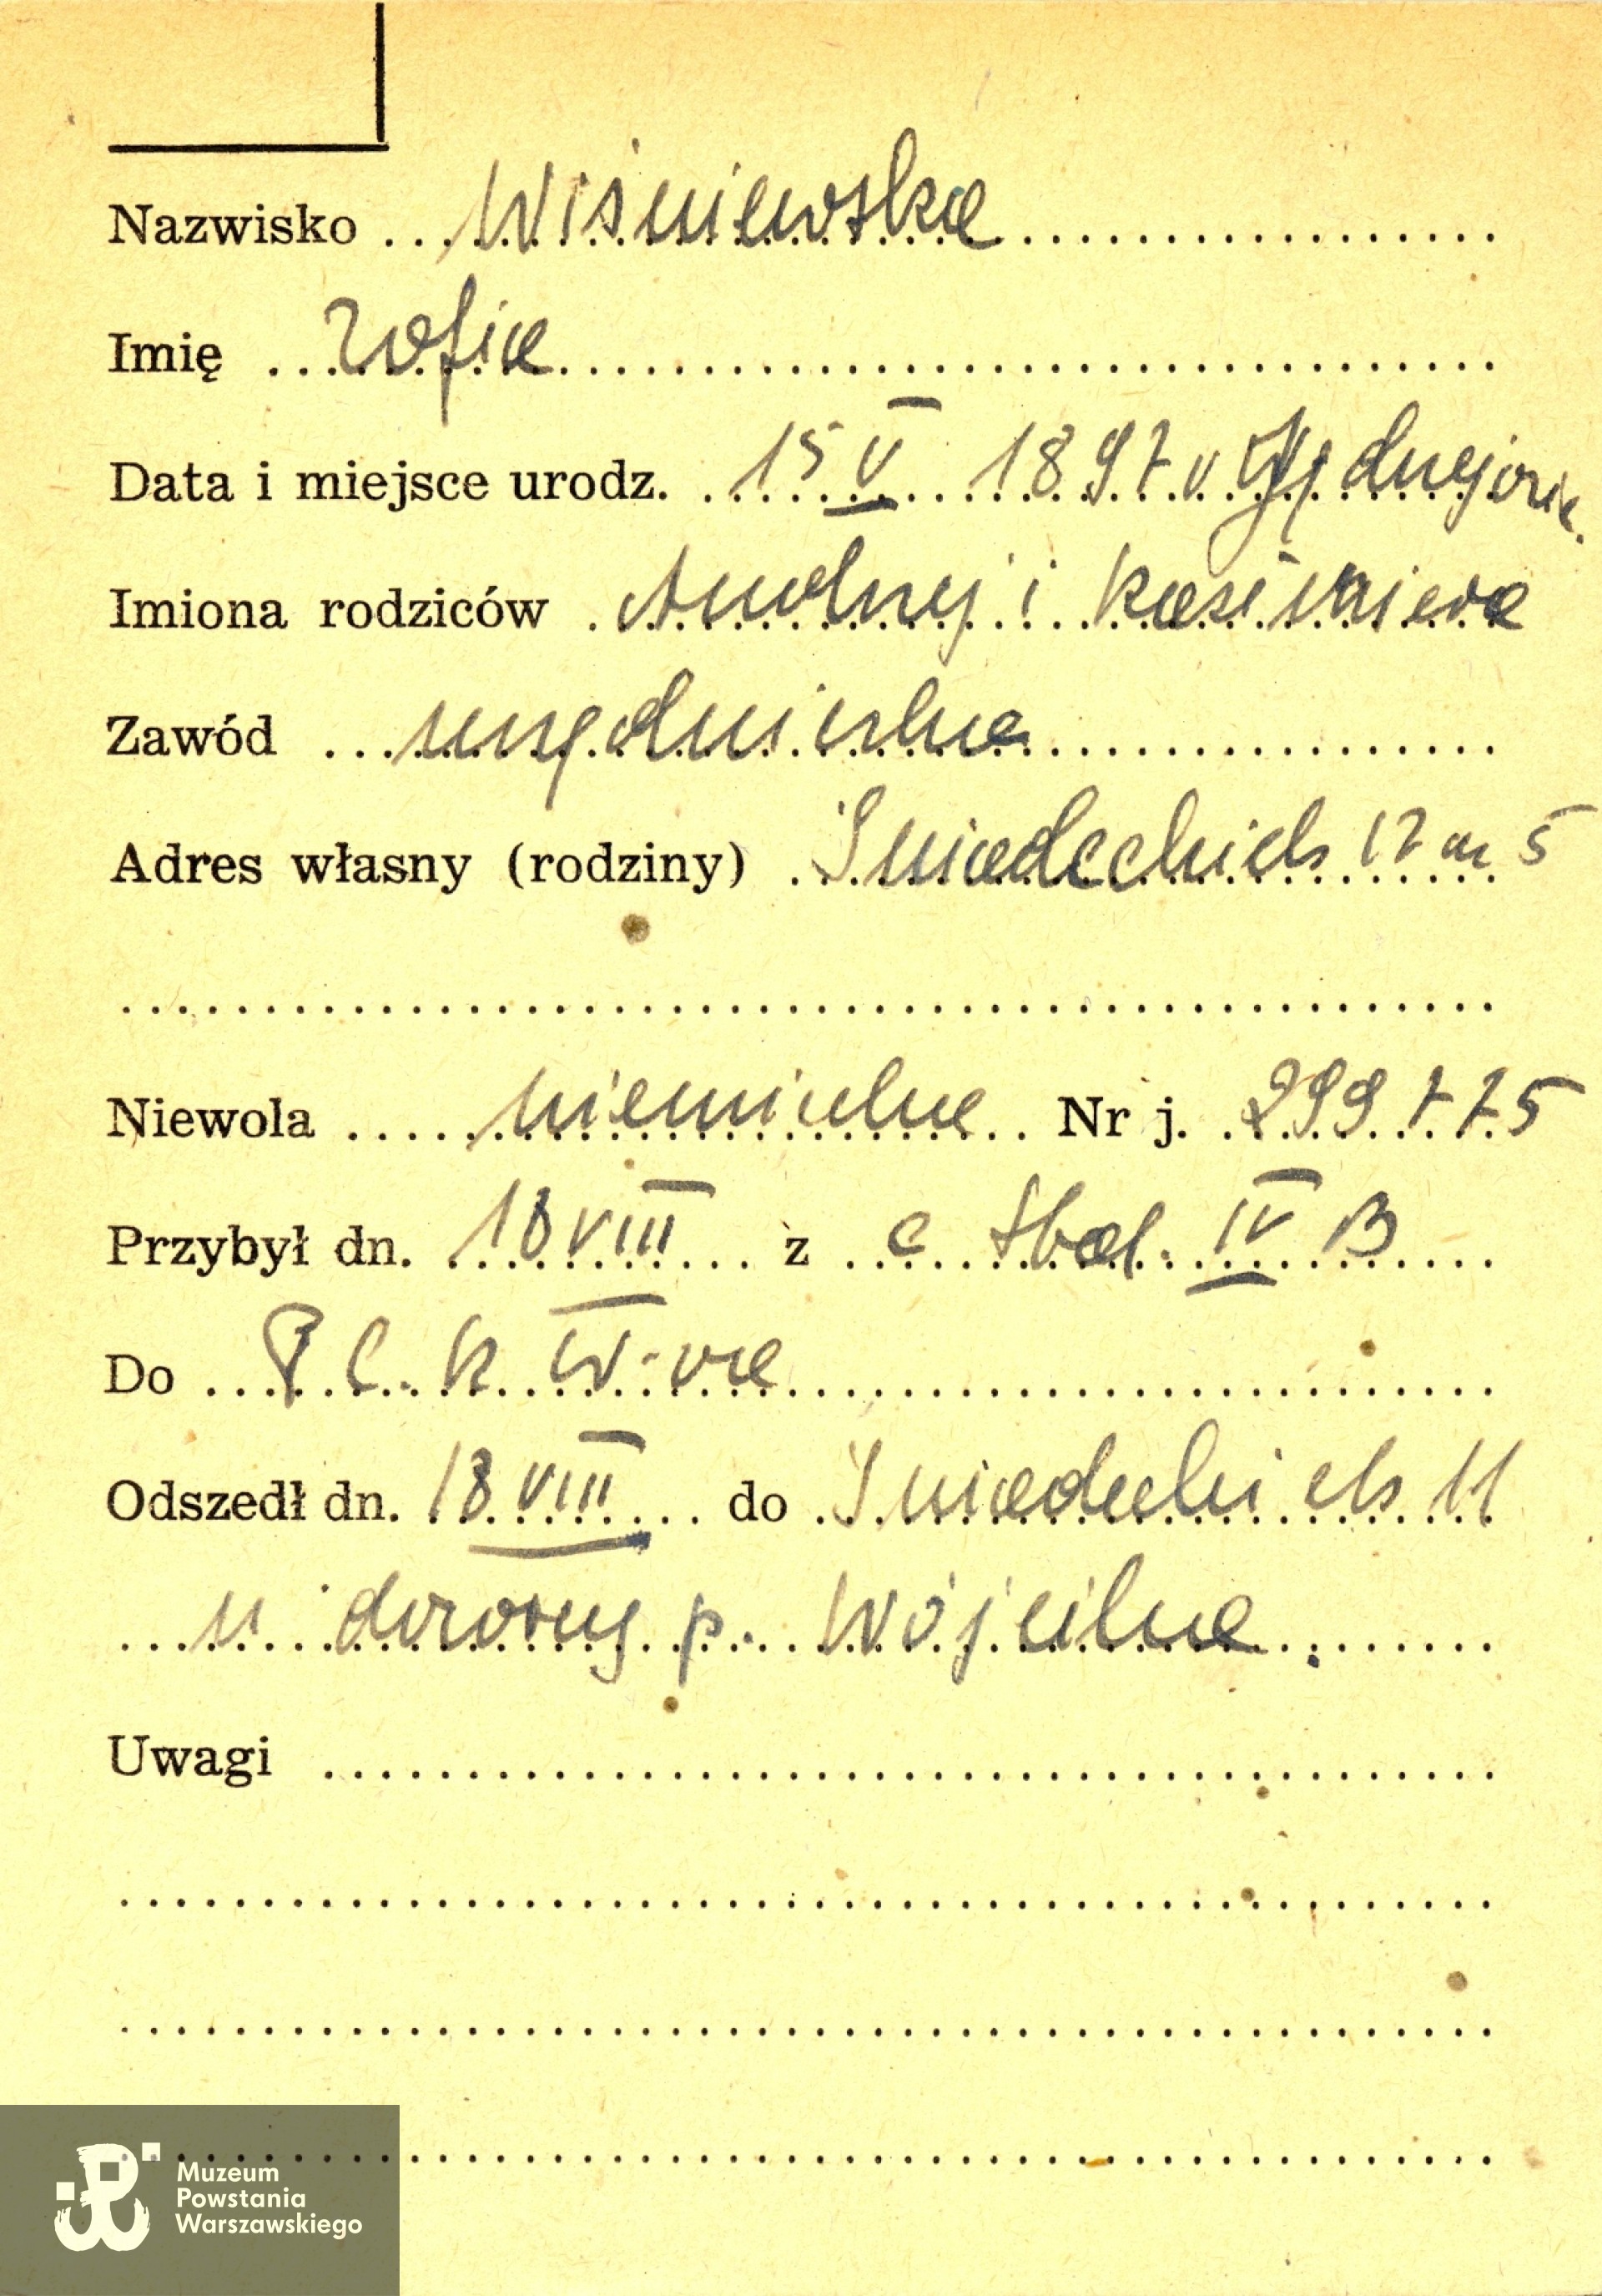 Nazwisko Wiśniewska
Imię Zofia
Data i miejsce urodz. 15 V 1897 v
Imiona rodziców Andrzej i Kazimiera
Zawód urzędniczka
Adres własny (rodziny) Śniadeckich 17 m 5
Niewola niemiecka Nr j. 299775
Przybył dn. 18 VIII z c Stal. IV B
Do P.C.K W-wa
Odszedł dn. 18 VIII do Śniadeckich 11
u dozorcy p. Wójcika.
Uwagi
Muzeum
Powstania
Warszawskiego